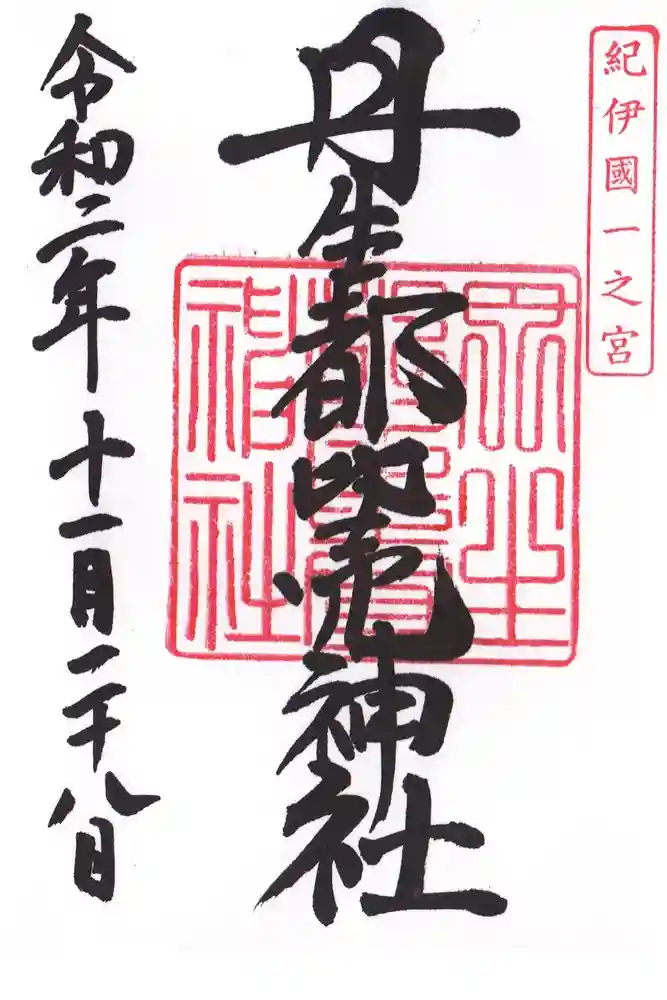 紀伊國一之宮
丹生都比売神社
令和二年十一月二十八日
丹生都比賣神社